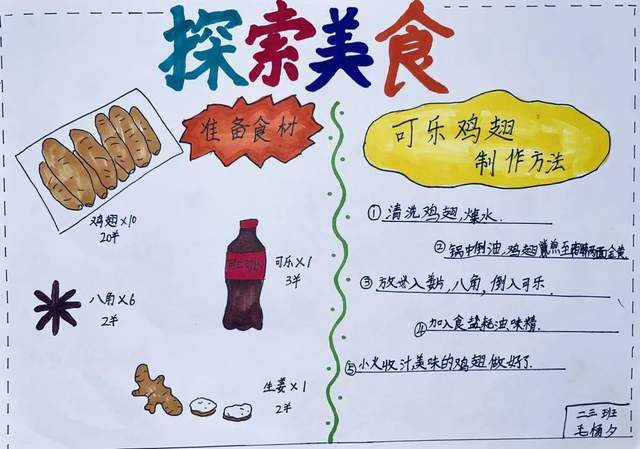 探索美食
准备食材
鸡翅×10
20半
可乐×1
3半
八角×6
2半
生姜×1
2半
可乐鸡翅
制作方法
①清洗鸡翅,燥水.
②锅中倒油,鸡翅煎至两面金黄
③放姜片,八角,倒入可乐.
④加入食盐耗油味精.
⑤小火收汁美味的鸡翅做好了
二三班
毛楠夕